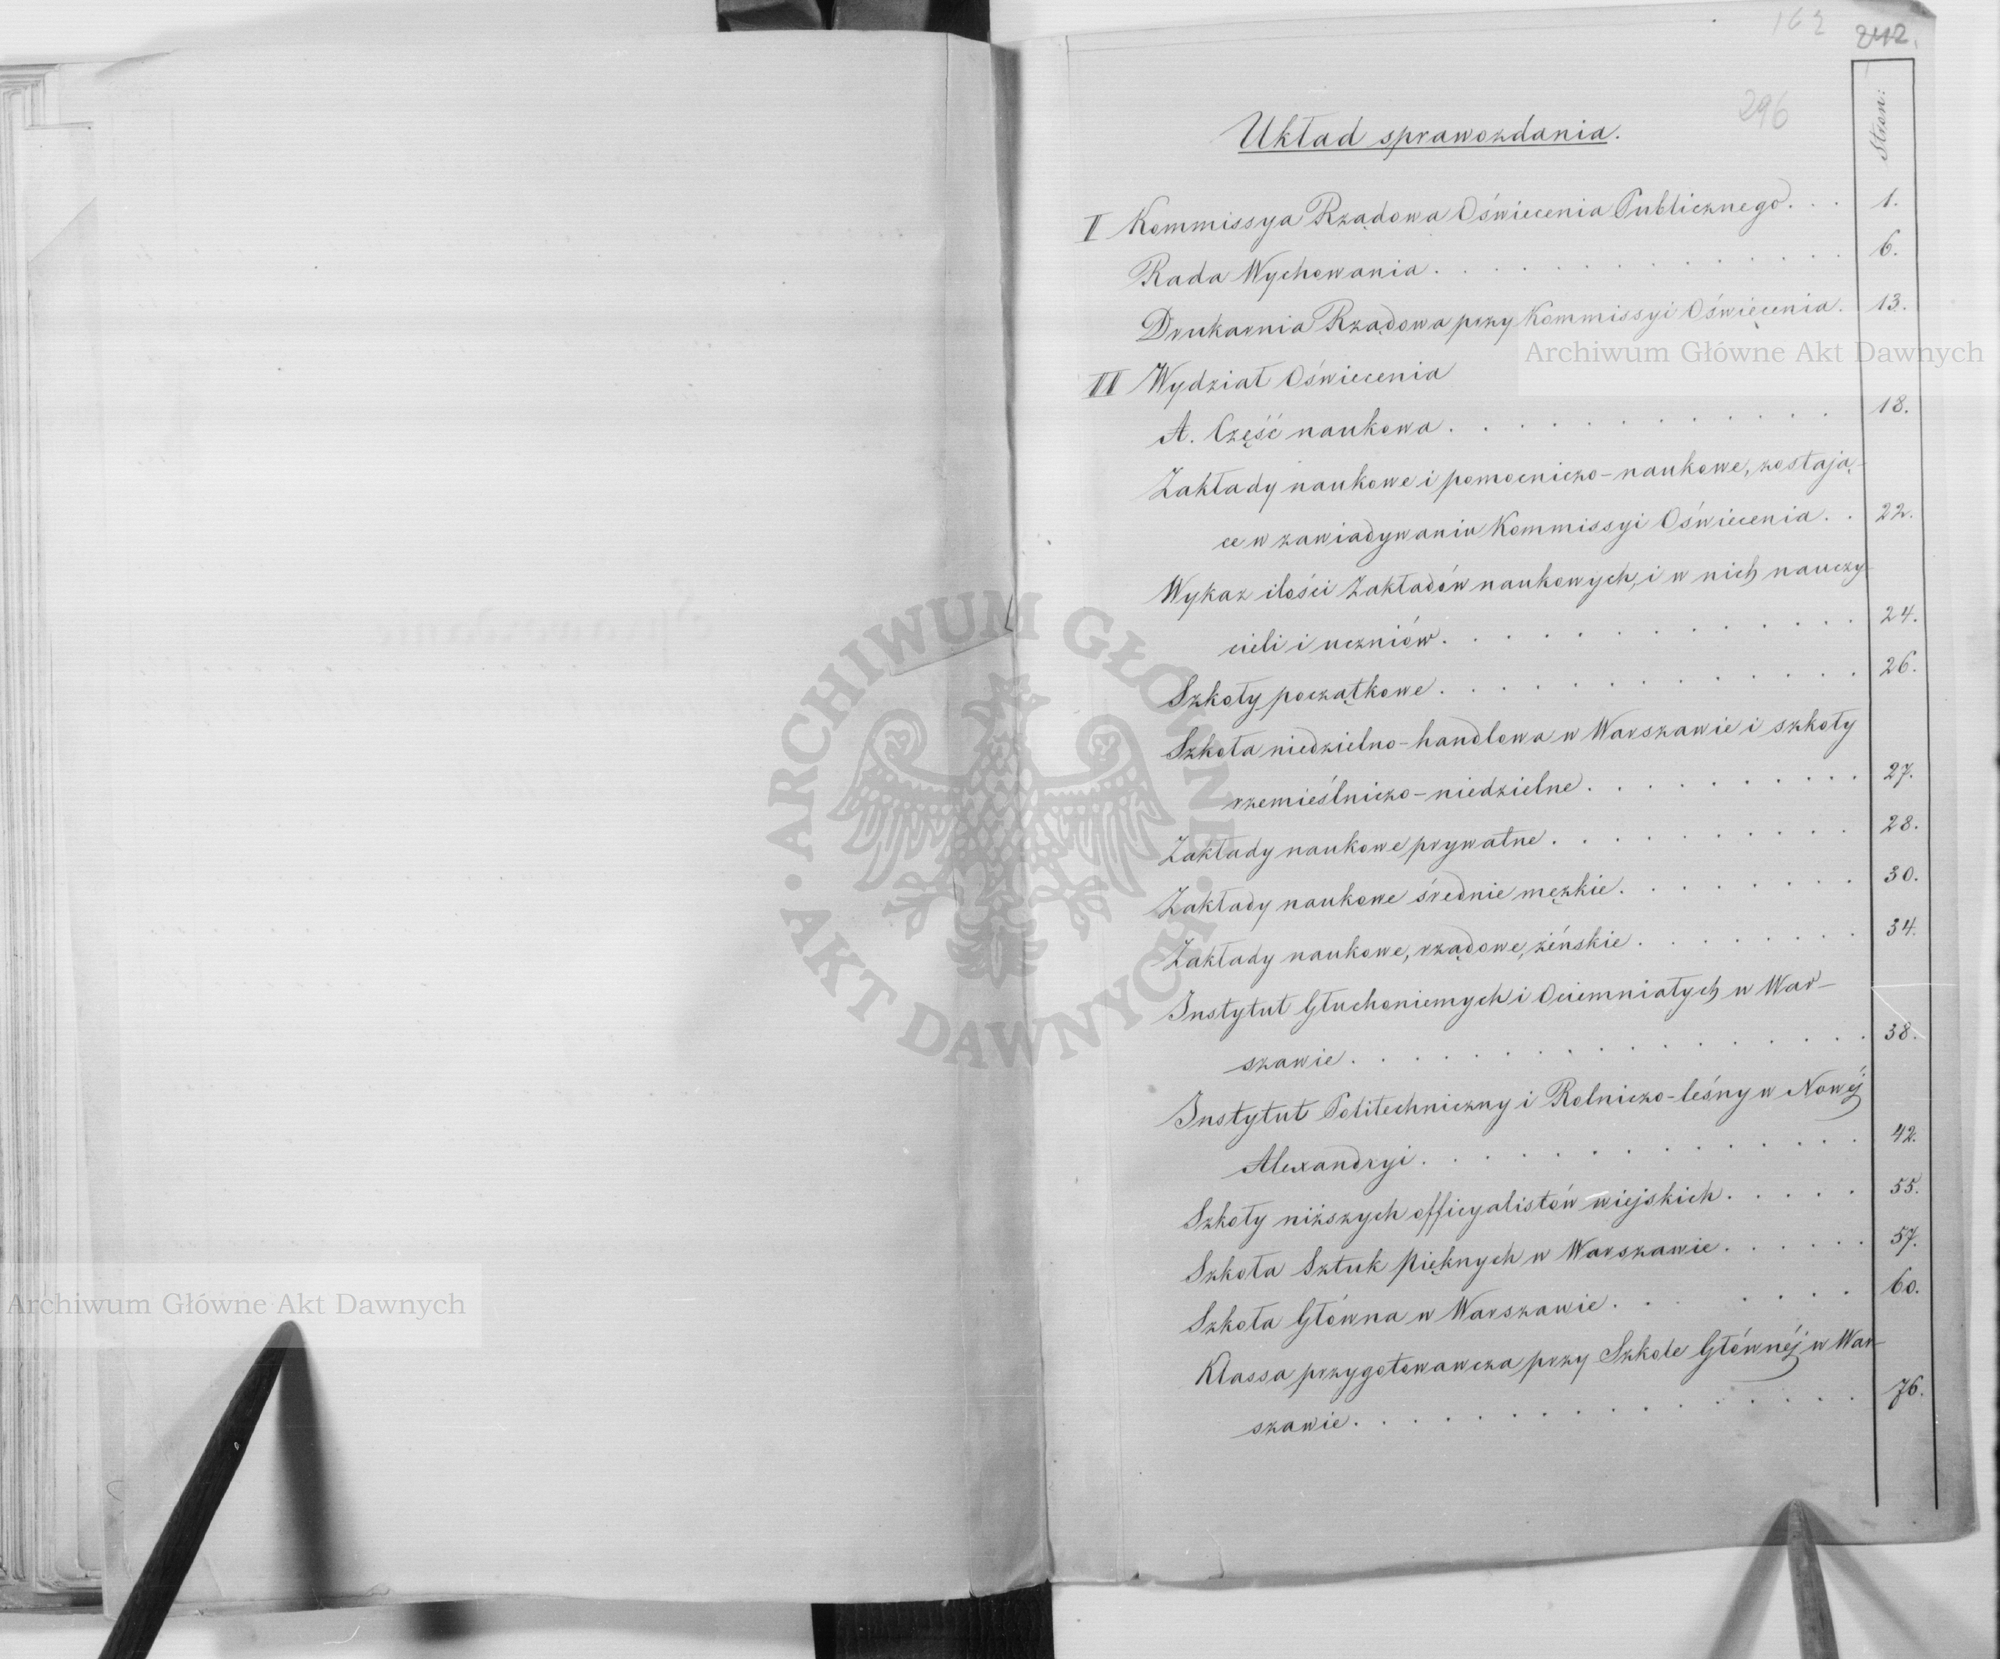 163
242.
296
Stron:
Układ sprawozdania.
I Kommissya Rządowa Oświecenia Publicznego. . . 1.
Rada Wychowania. . . . . . . . . . . . . . 6.
Drukarnia Rządowa przy Kommissyi Oświęcenia. 13.
Archiwum Główne Akt Dawnych
II Wydział Oświecenia
A. Część naukowa. . . . . . . . . . . . 18.
Zakłady naukowe i pomocniczo-naukowe, zostają-
ce w zawiadywaniu Kommissyi Oświecenia. . 22.
Wykaz ilości Zakładów naukowych, i w nich nauczy-
cieli i uczniów. . . . . . . . . . . . . . 24.
Szkoły początkowe. . . . . . . . . . . . . 26.
Szkoła niedzielno-handlowa w Warszawie i szkoły
rzemieślniczo-niedzielne. . . . . . . . . . 27.
Zakłady naukowe prywatne. . . . . . . . . . 28.
Zakłady naukowe średnie męzkie. . . . . . . . 30.
Zakłady naukowe, rządowe, żeńskie. . . . . . . . 34.
Instytut Głuchoniemych i Ociemniałych w War-
szawie. . . . . . . . . . . . . . . . . 38.
Instytut Politechniczny i Rolniczo-leśny w Nowéj
Alexandryi. . . . . . . . . . . . . . . 42.
Szkoły niższych officyalistów wiejskich. . . . . 55.
Szkoła Sztuk Pięknych w Warszawie. . . . . . 57.
Szkoła Główna w Warszawie. . . . . . . . 60.
Klassa przygotowawcza przy Szkole Głównéj w War-
szawie. . . . . . . . . . . . . . . . . 76.
ARCHIWUM GŁÓWNE · AKT DAWNYCH ·
Archiwum Główne Akt Dawnych